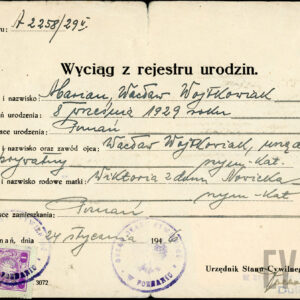 A 2258/29 V.
Wyciąg z rejestru urodzin.
i nazwisko: Marian, Wacław Wojtkowiak
urodzenia: 8 września 1929 roku
sce urodzenia: Poznań
i nazwisko oraz zawód ojca: Wacław Wojtkowiak, urzęd
prywatny rzym-kat.
i nazwisko rodowe matki: Wiktoria z domu Nowicka
rzym-kat
sce zamieszkania: Poznań
nań, dnia 24 stycznia 194
W POZNANIU
Urzędnik Stanu Cywilne
3072